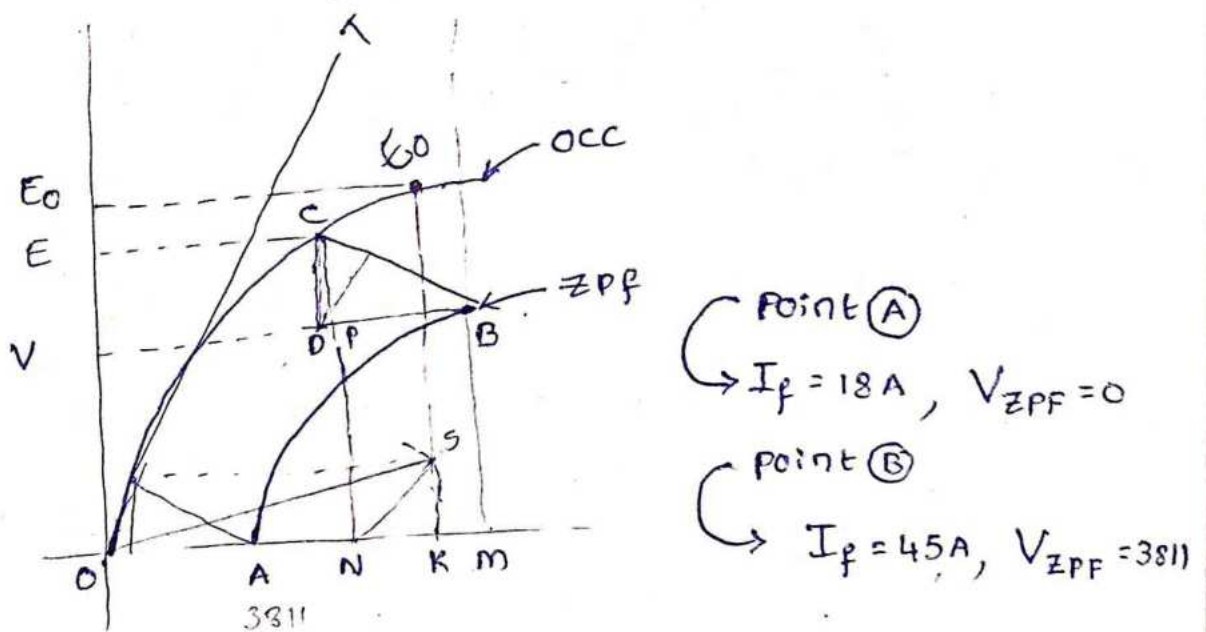 T
E0
OCC
E0
C
E
ZPF
V
D P
B
S
O
A
N
K
M
3811
Point A
If = 18A, VZPF = 0
Point B
If = 45A, VZPF = 3811